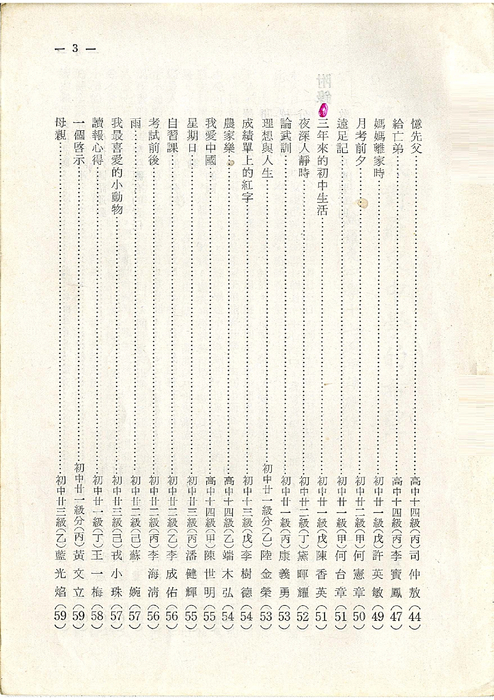 — 3 —
憶先父……高中十四級(丙)司仲敖(44)
給亡弟……高中十四級(丙)李寶鳳(47)
媽媽離家時……初中廿一級(戊)許英敏(49)
月考前夕……初中廿二級(甲)何憲章(50)
遠足記……初中廿一級(甲)何台章(51)
三年來的初中生活……初中廿一級(戊)陳香英(51)
夜深人靜時……初中廿二級(丁)黨暉耀(52)
論武訓……初中廿一級(丙)康義勇(53)
理想與人生……初中廿一級分(乙)陸金榮(53)
成績單上的紅字……初中十三級(戊)李樹德(54)
農家樂……高中十四級(乙)端木弘(54)
我愛中國……高中十四級(甲)陳世明(55)
星期日……初中廿三級(丙)潘健輝(55)
自習課……初中廿二級(乙)李成佑(56)
考試前後……初中廿二級(丙)李海清(56)
雨……初中廿二級(己)蘇婉(57)
我最喜愛的小動物……初中廿三級(己)戎小珠(57)
讀報心得……初中廿一級(丁)王一梅(58)
一個啓示……初中廿一級分(丙)黃文立(59)
母親……初中廿三級(乙)藍光焰(59)